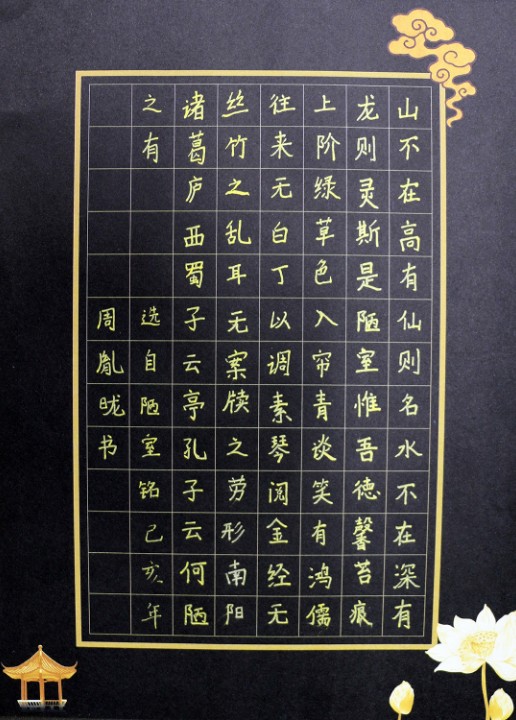 山不在高有仙则名水不在深有
龙则灵斯是陋室惟吾德馨苔痕
上阶绿草色入帘青谈笑有鸿儒
往来无白丁以调素琴阅金经无
丝竹之乱耳无案牍之劳形南阳
诸葛庐西蜀子云亭孔子云何陋
之有 选自陋室铭己亥年
周胤书